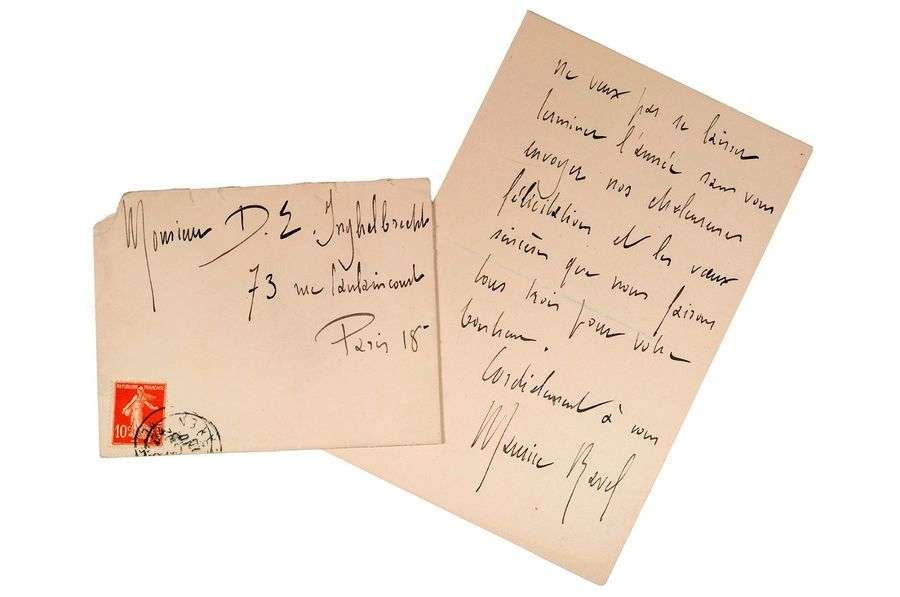 Monsieur D. E. Inghelbrecht
73 rue Caulaincourt
Paris 18e
RÉPUBLIQUE FRANÇAISE
10c
ne veux pas se laisser
terminer l'année sans vous
envoyer nos chaleureuses
félicitations et les vœux
sincères que nous faisons
tous trois pour votre
bonheur.
Cordialement à vous
Maurice Ravel